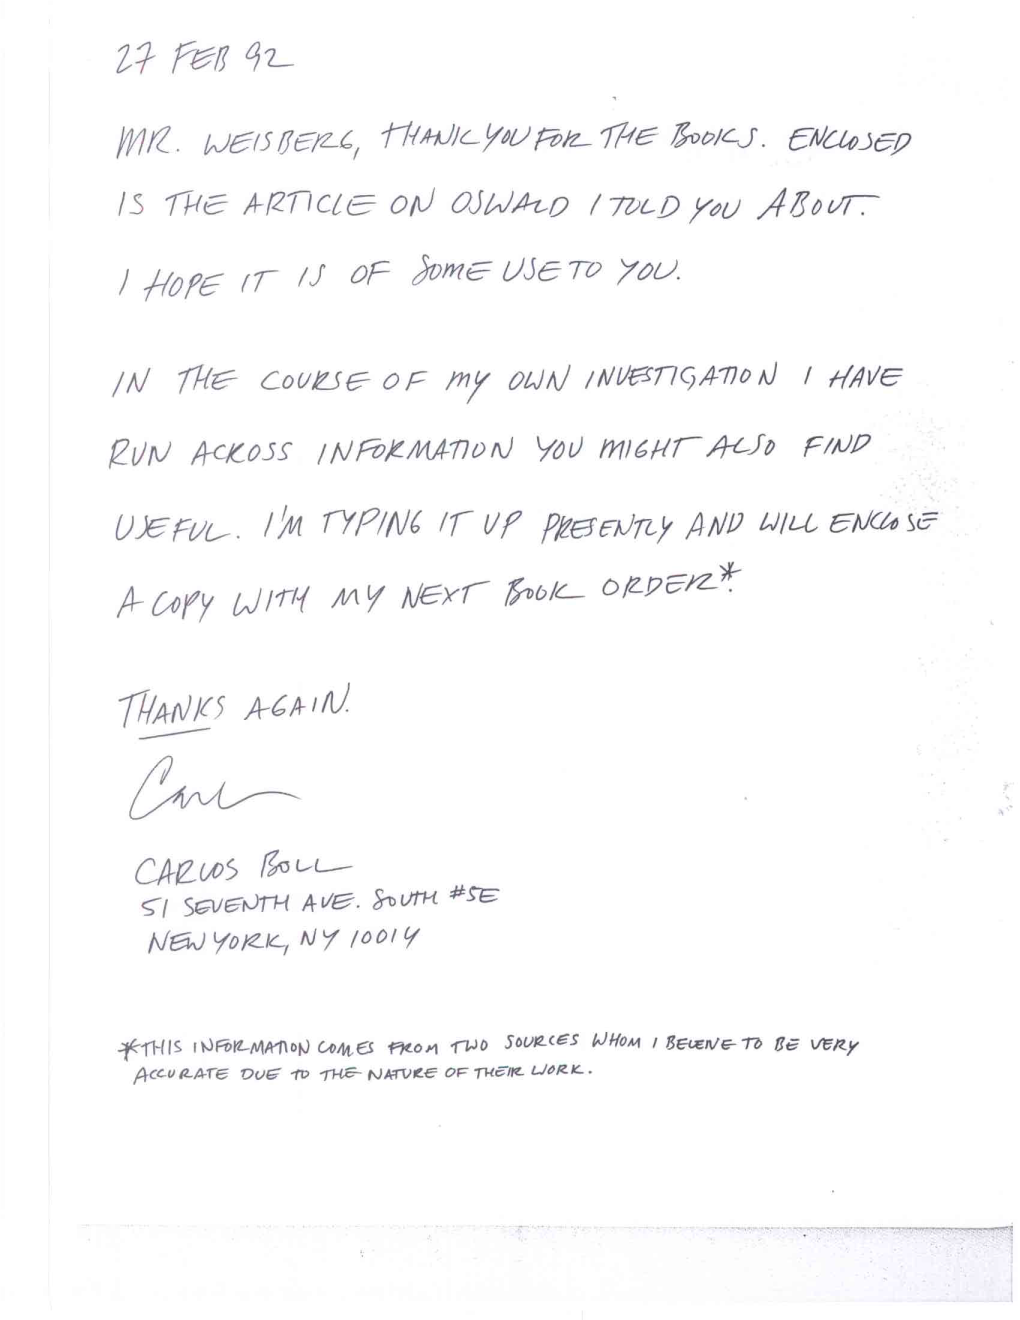 27 FEB 92
MR. WEISBERG, THANK YOU FOR THE BOOKS. ENCLOSED
IS THE ARTICLE ON OSWALD I TOLD YOU ABOUT.
I HOPE IT IS OF SOME USE TO YOU.
IN THE COURSE OF MY OWN INVESTIGATION I HAVE
RUN ACROSS INFORMATION YOU MIGHT ALSO FIND
USEFUL. I'M TYPING IT UP PRESENTLY AND WILL ENCLOSE
A COPY WITH MY NEXT BOOK ORDER*.
THANKS AGAIN.
Carl
CARLOS BOLL
51 SEVENTH AVE. SOUTH #5E
NEW YORK, NY 10014
*THIS INFORMATION COMES FROM TWO SOURCES WHOM I BELEIVE TO BE VERY
ACCURATE DUE TO THE NATURE OF THEIR WORK.